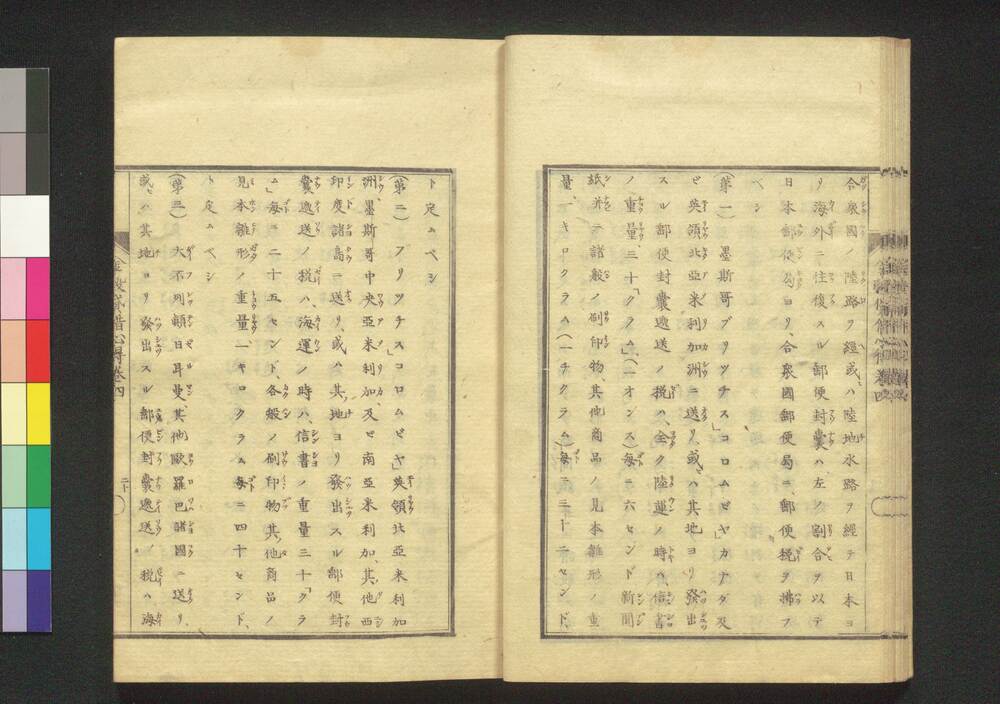 合衆國ノ陸路ヲ經或ハ陸地水路ヲ經テ日本ヨ
リ海外ニ往復スル郵便封嚢ハ、左ノ割合ヲ以テ
日本郵便局ヨリ、合衆國郵便局ニ、郵便税ヲ拂フ
ベシ
(第一) 墨斯哥「ブリツチス」コロムビヤ」カナダ」及
ビ英領北亞米利加洲ニ送リ、或ハ其地ヨリ發出
スル郵便封嚢遞送ノ税ハ、全ク陸運ノ時ハ、信書
ノ重量、三十「クラム」(一オンス)每ニ六セント新聞
紙、并ニ諸般ノ刷印物、其他商品ノ見本雛形ノ重
量、一キロクラム(一チクラム)每ニ三十二セント、
ト定ムベシ
(第二) ブリツチスコロムビヤ」英領北亞米利加
洲、墨斯哥中央亞米利加、及ビ南亞米利加、其他西
印度諸島ニ送リ、或ハ其地ヨリ發出スル郵便封
嚢遞送ノ税ハ、海運ノ時ハ、信書ノ重量三十「クラ
ム」每ニ二十五セント、各般ノ刷印物其他商品ノ
見本雛形ノ重量一キロクラム每ニ四十セント、
ト定ムベシ
(第三) 大不列顛日耳曼、其他歐羅巴諸國ニ送リ、
或ハ其地ヨリ發出スル郵便封嚢遞送ノ税ハ海
心得卷四
二十